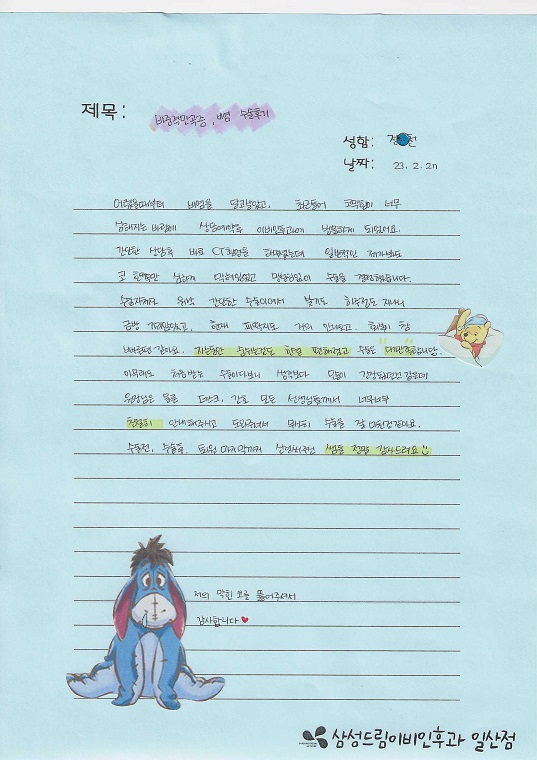 제목:
비중격만곡증, 비염 수술후기
성함:
날짜: 23. 2. 2
어렸을때부터 비염을 달고살았고, 최근들어 코막힘이 너무
심해지는 바람에 상담예약후 이비인후과에 방문하게 되었어요.
간단한 상담후 바로 CT촬영을 해주셨는데 일반적인 제가봐도
코 한쪽만 심하게 막혀있었고 망설임없이 수술을 결정했습니다.
수술자체가 워낙 간단한 수술이여서 붓기도 하루정도 지나니
금방 가라앉았고, 현재 피딱지도 거의 안나오고. 회복이 참
빠른편 같아요. 자는동안 숨쉬는것도 한결 편해졌고 수술은 "대만족"합니다.
아무래도 처음받는 수술이다보니 생각보다 많이 긴장했던것 같은데
원장님은 물론 데스크, 간호 모든 선생님들께서 너무너무
친절히 안내해주시고 도와주셔서 무사히 수술을 잘 마친것같아요.
수술전, 수술후, 퇴원 마지막까지 신경써주신 쌤들 정말 감사드려요
저의 막힌 코를 뚫어주셔서
감사합니다
삼성드림이비인후과 일산점